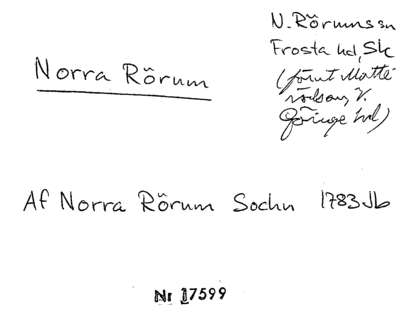 Norra Rörum
N. Rörums sn
Frosta hd, Sk
(förut Matte
rödsanx, V.
Göinge hd)
Af Norra Rörum Sochn 1783 Jb
Nr 17599